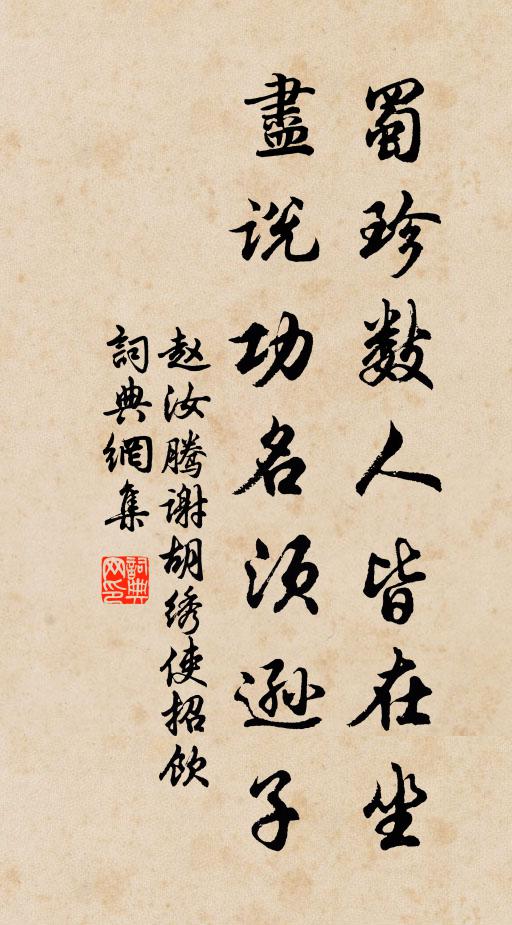 蜀珍数人皆在坐
盡说功名须遜子
赵汝腾谢胡绣使招饮
詞典網集
詞典网印